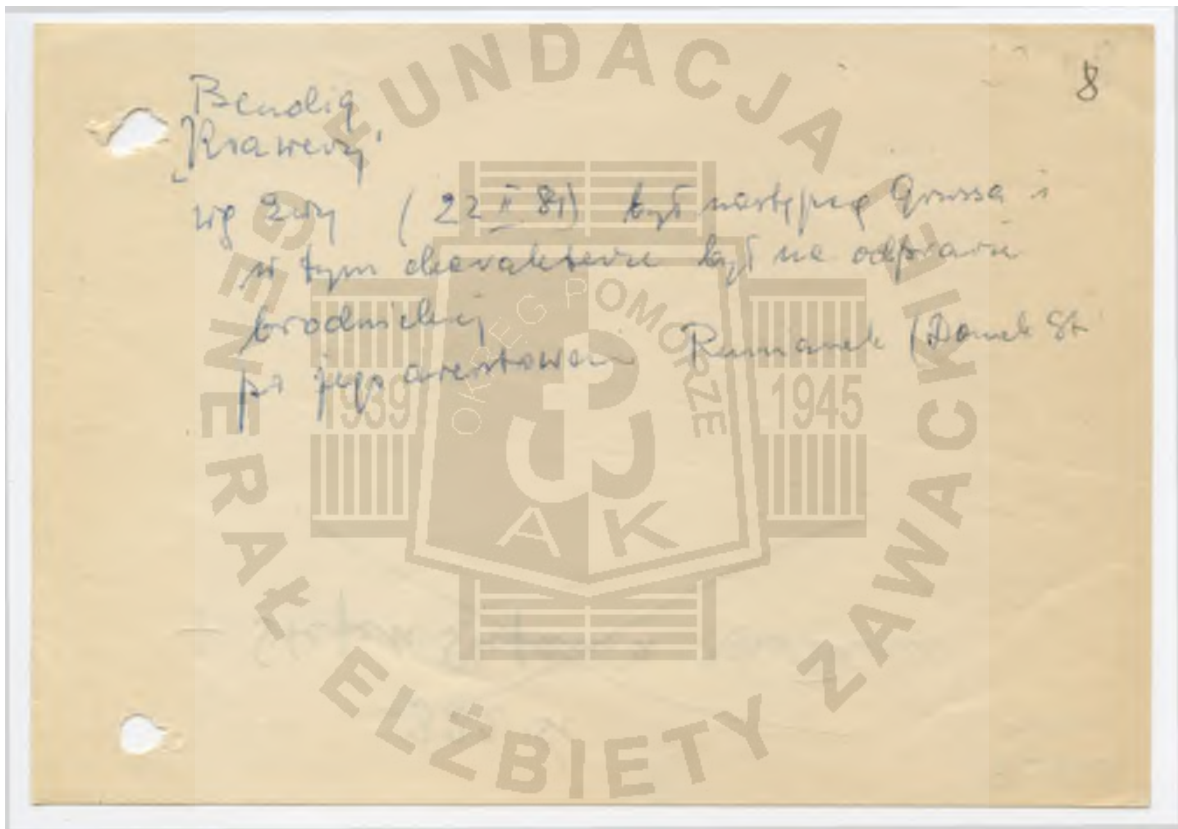 8
Bendig
"Krawczyk"
wg Ewy (22 II 81) był następcą Grussa i
w tym charakterze był na odprawie
brodnickiej
po jego aresztowaniu Rumianek (Domek St
FUNDACJA
GENERAŁ ELŻBIETY ZAWACKIEJ
OKRĘG POMORZE
1939 1945
AK